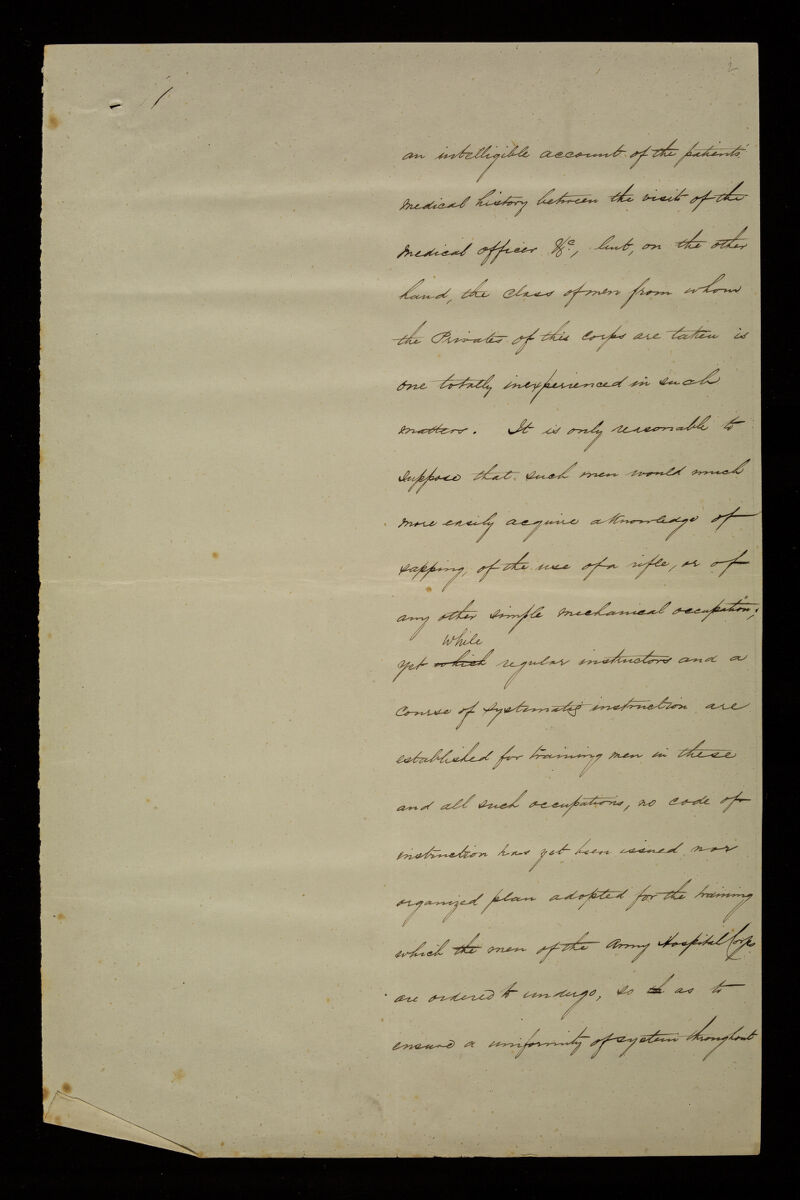 2
an intelligible account of the patients'
medical history between the visits of the
medical officer &c, but, on the other
hand, the class of men from whom
the Privates of this Corps are taken is
one totally inexperienced in such
matters. It is only reasonable to
suppose that such men would much
more easily acquire a knowledge of
sapping, of the use of a rifle, or of
any other simple mechanical occupation;
while
yet which regular instructors and a
course of systematic instruction are
established for training men in these
and all such occupations, no code of
instruction has yet been issued nor
organized plan adopted for the training
which the men of the Army Hospital Corps
are ordered to undergo, so as to
ensure a uniformity of system throughout